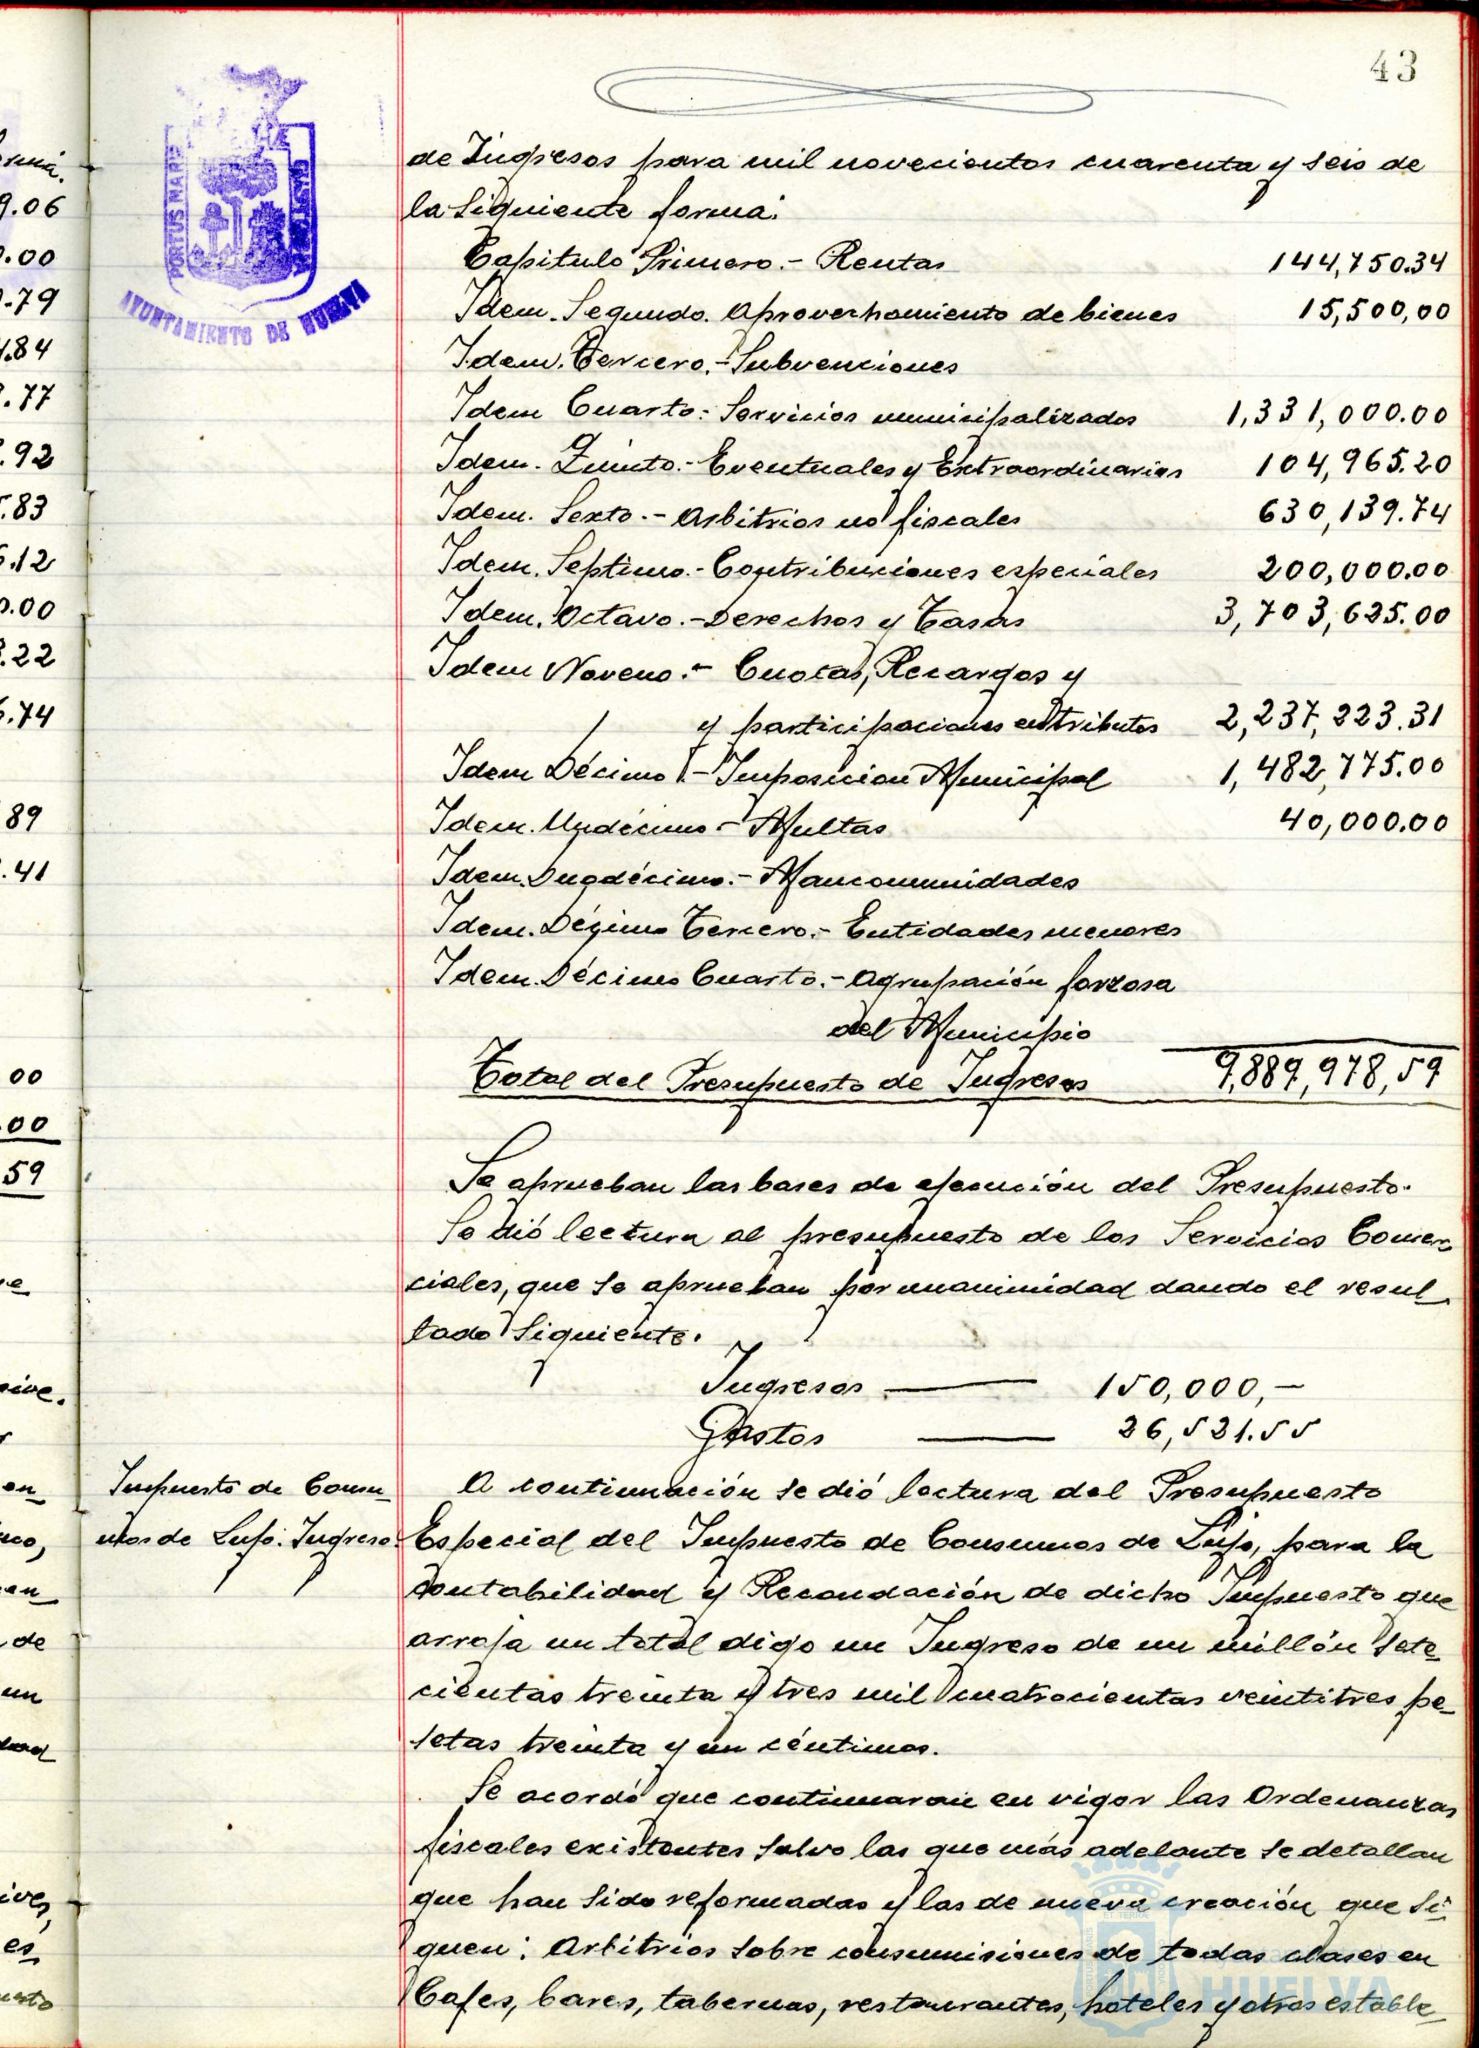 43
PORTUS MARIS
AYUNTAMIENTO DE HUELVA
de Ingresos para mil novecientos cuarenta y seis de
la siguiente forma:
Capitulo Primero.- Rentas 144,750.34
Idem. Segundo. Aprovechamiento de bienes 15,500,00
Idem. Tercero.- Subvenciones
Idem Cuarto.- Servicios municipalizados 1,331,000.00
Idem. Quinto.- Eventuales y Extraordinarios 104,965.20
Idem. Sexto.- Arbitrios no fiscales 630,139.74
Idem. Septimo.- Contribuciones especiales 200,000.00
Idem. Octavo.- Derechos y Tasas 3,703,625.00
Idem Noveno.- Cuotas, Recargos y
y participaciones en tributos 2,237,223.31
Idem Décimo.- Imposicion Municipal 1,482,775.00
Idem. Undécimo.- Multas 40,000.00
Idem. Duodécimo.- Mancomunidades
Idem. Décimo Tercero.- Entidades menores
Idem. Décimo Cuarto.- Agrupación forzosa
del Municipio
Total del Presupuesto de Ingresos 9,889,978,59
Se aprueban las bases de ejecución del Presupuesto.
Se dió lectura al presupuesto de los Servicios Comer-
ciales, que se aprueban por unanimidad dando el resul-
tado siguiente.
Ingresos 150,000,-
Gastos 26,521.55
Impuesto de Consu-
mos de Lujo. Ingreso.
A continuación se dió lectura del Presupuesto
Especial del Impuesto de Consumos de Lujo, para la
contabilidad y Recaudación de dicho Impuesto que
arroja un total digo un Ingreso de un millón sete-
cientas treinta y tres mil cuatrocientas veintitres pe-
setas treinta y un céntimos.
Se acordó que continuaran en vigor las Ordenanzas
fiscales existentes salvo las que más adelante se detallan
que han sido reformadas y las de nueva creación que si-
guen: Arbitrios sobre consumisiones de todas clases en
Cafes, bares, tabernas, restaurantes, hoteles y otros estable-
HUELVA
9.06
.00
.79
.84
.77
.92
.83
.12
.00
.22
.74
89
.41
00
.00
59